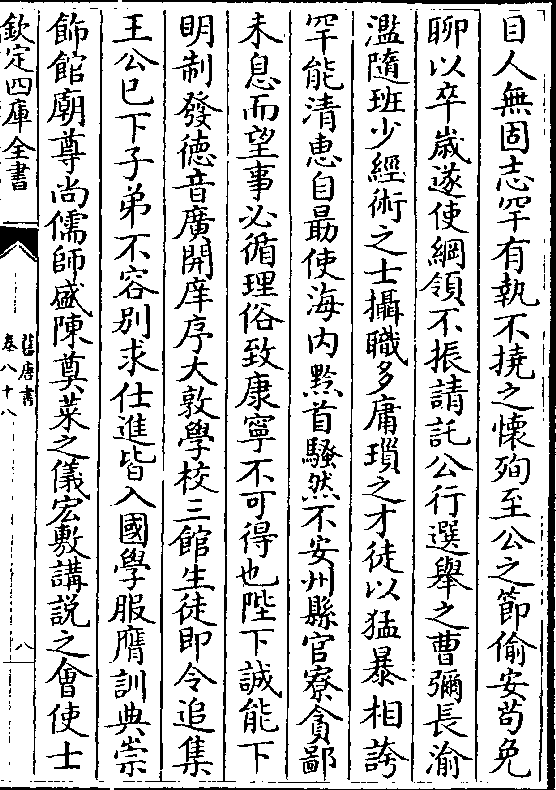 目人無固志罕有執不撓之懷殉至公之節偷安苟免
聊以卒歲遂使綱領不振請託公行選舉之曹彌長渝
濫隨班少經術之士攝職多庸瑣之才徒以猛暴相誇
罕能清惠自勗使海內黔首騷然不安州縣官寮貪鄙
未息而望事必循理俗致康寧不可得也陛下誠能下
明制發德音廣開庠序大敦學校三館生徒即令追集
王公已下子弟不容別求仕進皆入國學服膺訓典崇
飾館廟尊尚儒師盛陳奠菜之儀宏敷講說之會使士
欽定四庫全書
舊唐書
卷八十八
八